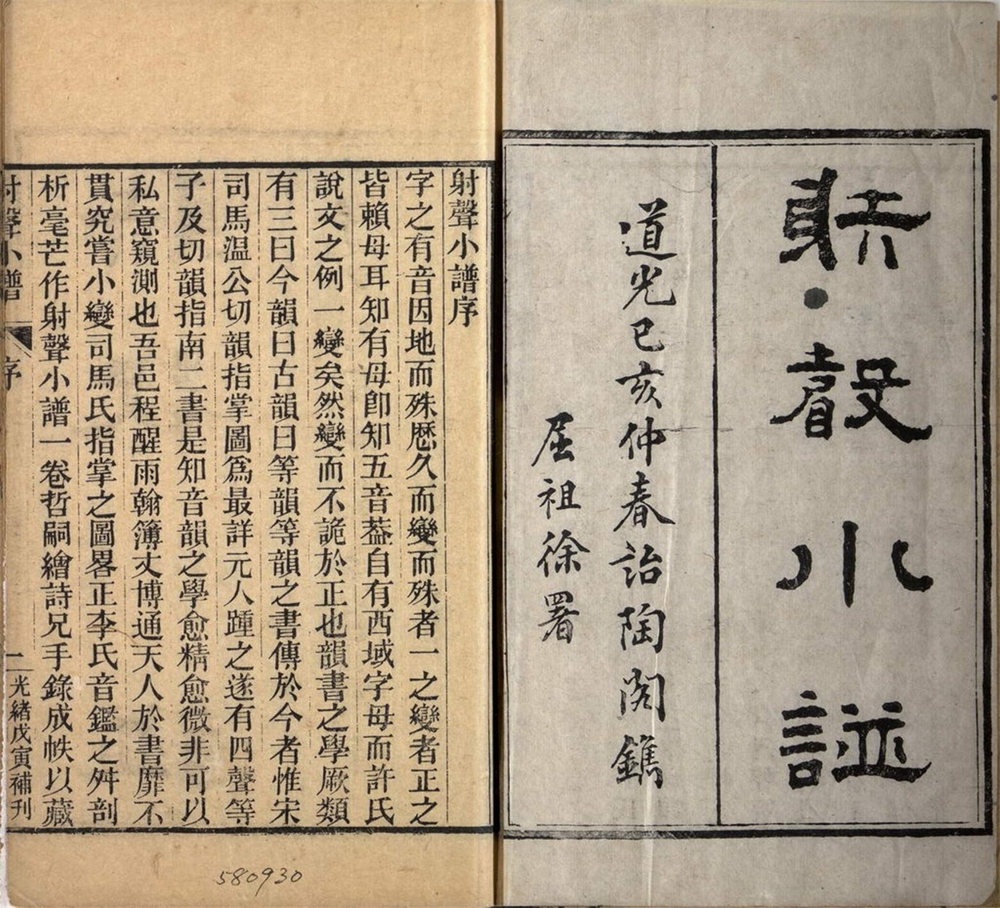 射聲小譜
道光己亥仲春詒陶閣鐫
屈祖徐署
射聲小譜序
字之有音因地而殊歷久而變而殊者一之變者正之
皆賴母耳知有母卽知五音葢自有西域字母而許氏
說文之例一變矣然變而不詭於正也韻書之學厥類
有三曰今韻曰古韻曰等韻等韻之書傳於今者惟宋
司馬溫公切韻指掌圖爲最詳元人踵之遂有四聲等
子及切韻指南二書是知音韻之學愈精愈微非可以
私意窺測也吾邑程醒雨翰簿丈博通天人於書靡不
貫究嘗小變司馬氏指掌之圖畧正李氏音鑑之舛剖
析毫芒作射聲小譜一卷哲嗣繪詩兄手錄成帙以藏
射聲小譜 序 一 光緒戊寅補刊
580930